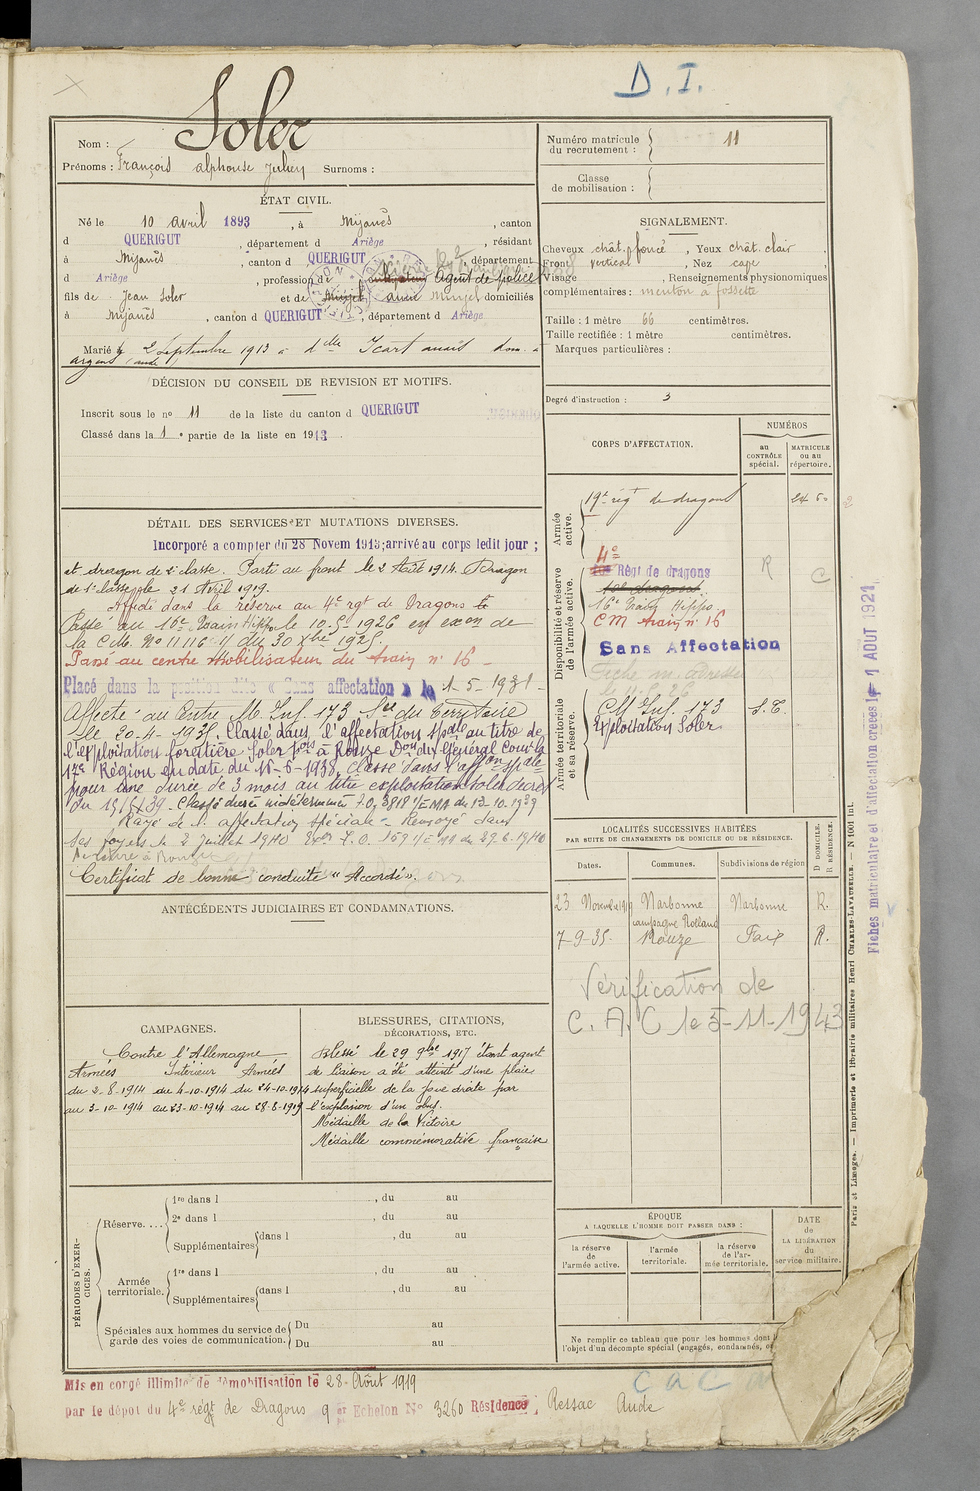 D. I.
Nom : Soler
Prénoms : François alphonse Julien Surnoms :
Numéro matricule du recrutement : 11
Classe de mobilisation :
ÉTAT CIVIL.
Né le 10 avril 1893, à Mijanès, canton
d QUERIGUT, département d Ariège, résidant
à Mijanès, canton d QUERIGUT, département
d Ariège, profession de cultivateur Agent de police
fils de Jean Soler et de Marzel anna Marzel domiciliés
à Mijanès, canton d QUERIGUT, département d Ariège
Marié le 2 Septembre 1913 à dlle Icart anaïs dom. à
argens (aude)
SIGNALEMENT.
Cheveux chât. foncé, Yeux chât. clair
Front vertical, Nez cave
Visage , Renseignements physionomiques
complémentaires : menton à fossette
Taille : 1 mètre 66 centimètres.
Taille rectifiée : 1 mètre centimètres.
Marques particulières :
Degré d'instruction : 3
DÉCISION DU CONSEIL DE REVISION ET MOTIFS.
Inscrit sous le no 11 de la liste du canton d QUERIGUT
Classé dans la 1e partie de la liste en 1913
DÉTAIL DES SERVICES ET MUTATIONS DIVERSES.
Incorporé a compter du 28 Novem 1913; arrivé au corps ledit jour ;
et dragon de 2e classe. Parti au front le 2 Août 1914. Dragon
de 1e classe le 21 Avril 1919.
Affecté dans la réserve au 4e rgt de Dragons
Passé au 16e Train Hippo le 10.5.1926 en exon de
la C.M. No 11116-11 du 30 Xbre 1925
Passé au centre Mobilisateur du train no 16 -
Placé dans la position dite « Sans affectation » le 1-5-1931 -
Affecté au Centre M. Inf. 173 Sce du Territoire
le 20-4-1938. Classé dans l'affectation spale au titre de
l'exploitation forestière Soler fois à Rouze Don du Général Comt la
17e Région en date du 15-6-1938. Classé dans l'affon spale
pour une durée de 3 mois au titre exploitation soler decret
du 1939. Classé durée indéterminée I.O. 3818 1/EMA du 13-10-1939
Rayé de l'affectation spéciale - Renvoyé dans
ses foyers le 2 juillet 1940 I.O. 159 1/EMA du 29.6.1940
Certificat de bonne conduite "Accordé".
CORPS D'AFFECTATION.
NUMÉROS
au CONTRÔLE spécial.
MATRICULE ou au répertoire.
Armée active.
19e régt de dragons 2450
Disponibilité et réserve de l'armée active.
4e
Régt de dragons R C
10e dragons
16e Train Hippo
CM train no 16
Sans Affectation
Armée territoriale et sa réserve.
CM Inf. 173 S.T.
Exploitation Soler
ANTÉCÉDENTS JUDICIAIRES ET CONDAMNATIONS.
LOCALITÉS SUCCESSIVES HABITÉES
PAR SUITE DE CHANGEMENTS DE DOMICILE OU DE RÉSIDENCE.
Dates. Communes. Subdivisions de région D DOMICILE. R RÉSIDENCE.
23 Novembre 1919 Narbonne Narbonne R.
campagne Rolland
7-9-35. Rouze Foix R.
Vérification de
C. A. C le 5-11-1943
CAMPAGNES.
Contre l'Allemagne
Armées Intérieur Armées
du 2-8-1914 du 4-10-1914 du 24-10-1914
au 3-10-1914 au 23-10-1914 au 28-8-1919
BLESSURES, CITATIONS,
DÉCORATIONS, ETC.
Blessé le 29 9bre 1917 étant agent
de liaison a été atteint d'une plaie
superficielle de la joue droite par
l'explosion d'un obus.
Médaille de la Victoire
Médaille commémorative française
PÉRIODES D'EXERCICES.
Réserve....
1re dans l , du au
2e dans l , du au
Supplémentaires dans l , du au
Armée territoriale.
1re dans l , du au
Supplémentaires dans l , du au
Spéciales aux hommes du service de
garde des voies de communication.
Du au
Du au
ÉPOQUE
A LAQUELLE L'HOMME DOIT PASSER DANS :
la réserve de l'armée active.
l'armée territoriale.
la réserve de l'armée territoriale.
DATE de LA LIBÉRATION du service militaire.
Ne remplir ce tableau que pour les hommes dont
l'objet d'un décompte spécial (engagés, condamnés,
Mis en congé illimité de démobilisation le 28 Août 1919
par le dépôt du 4e régt de Dragons 9er Echelon No 3260 Résidence : Ressac Aude
Fiches matriculaire et d'affectation créées le 1 AOUT 1921
Paris et Limoges. — Imprimerie et librairie militaires Henri CHARLES-LAVAUZELLE. — N 1001 int.